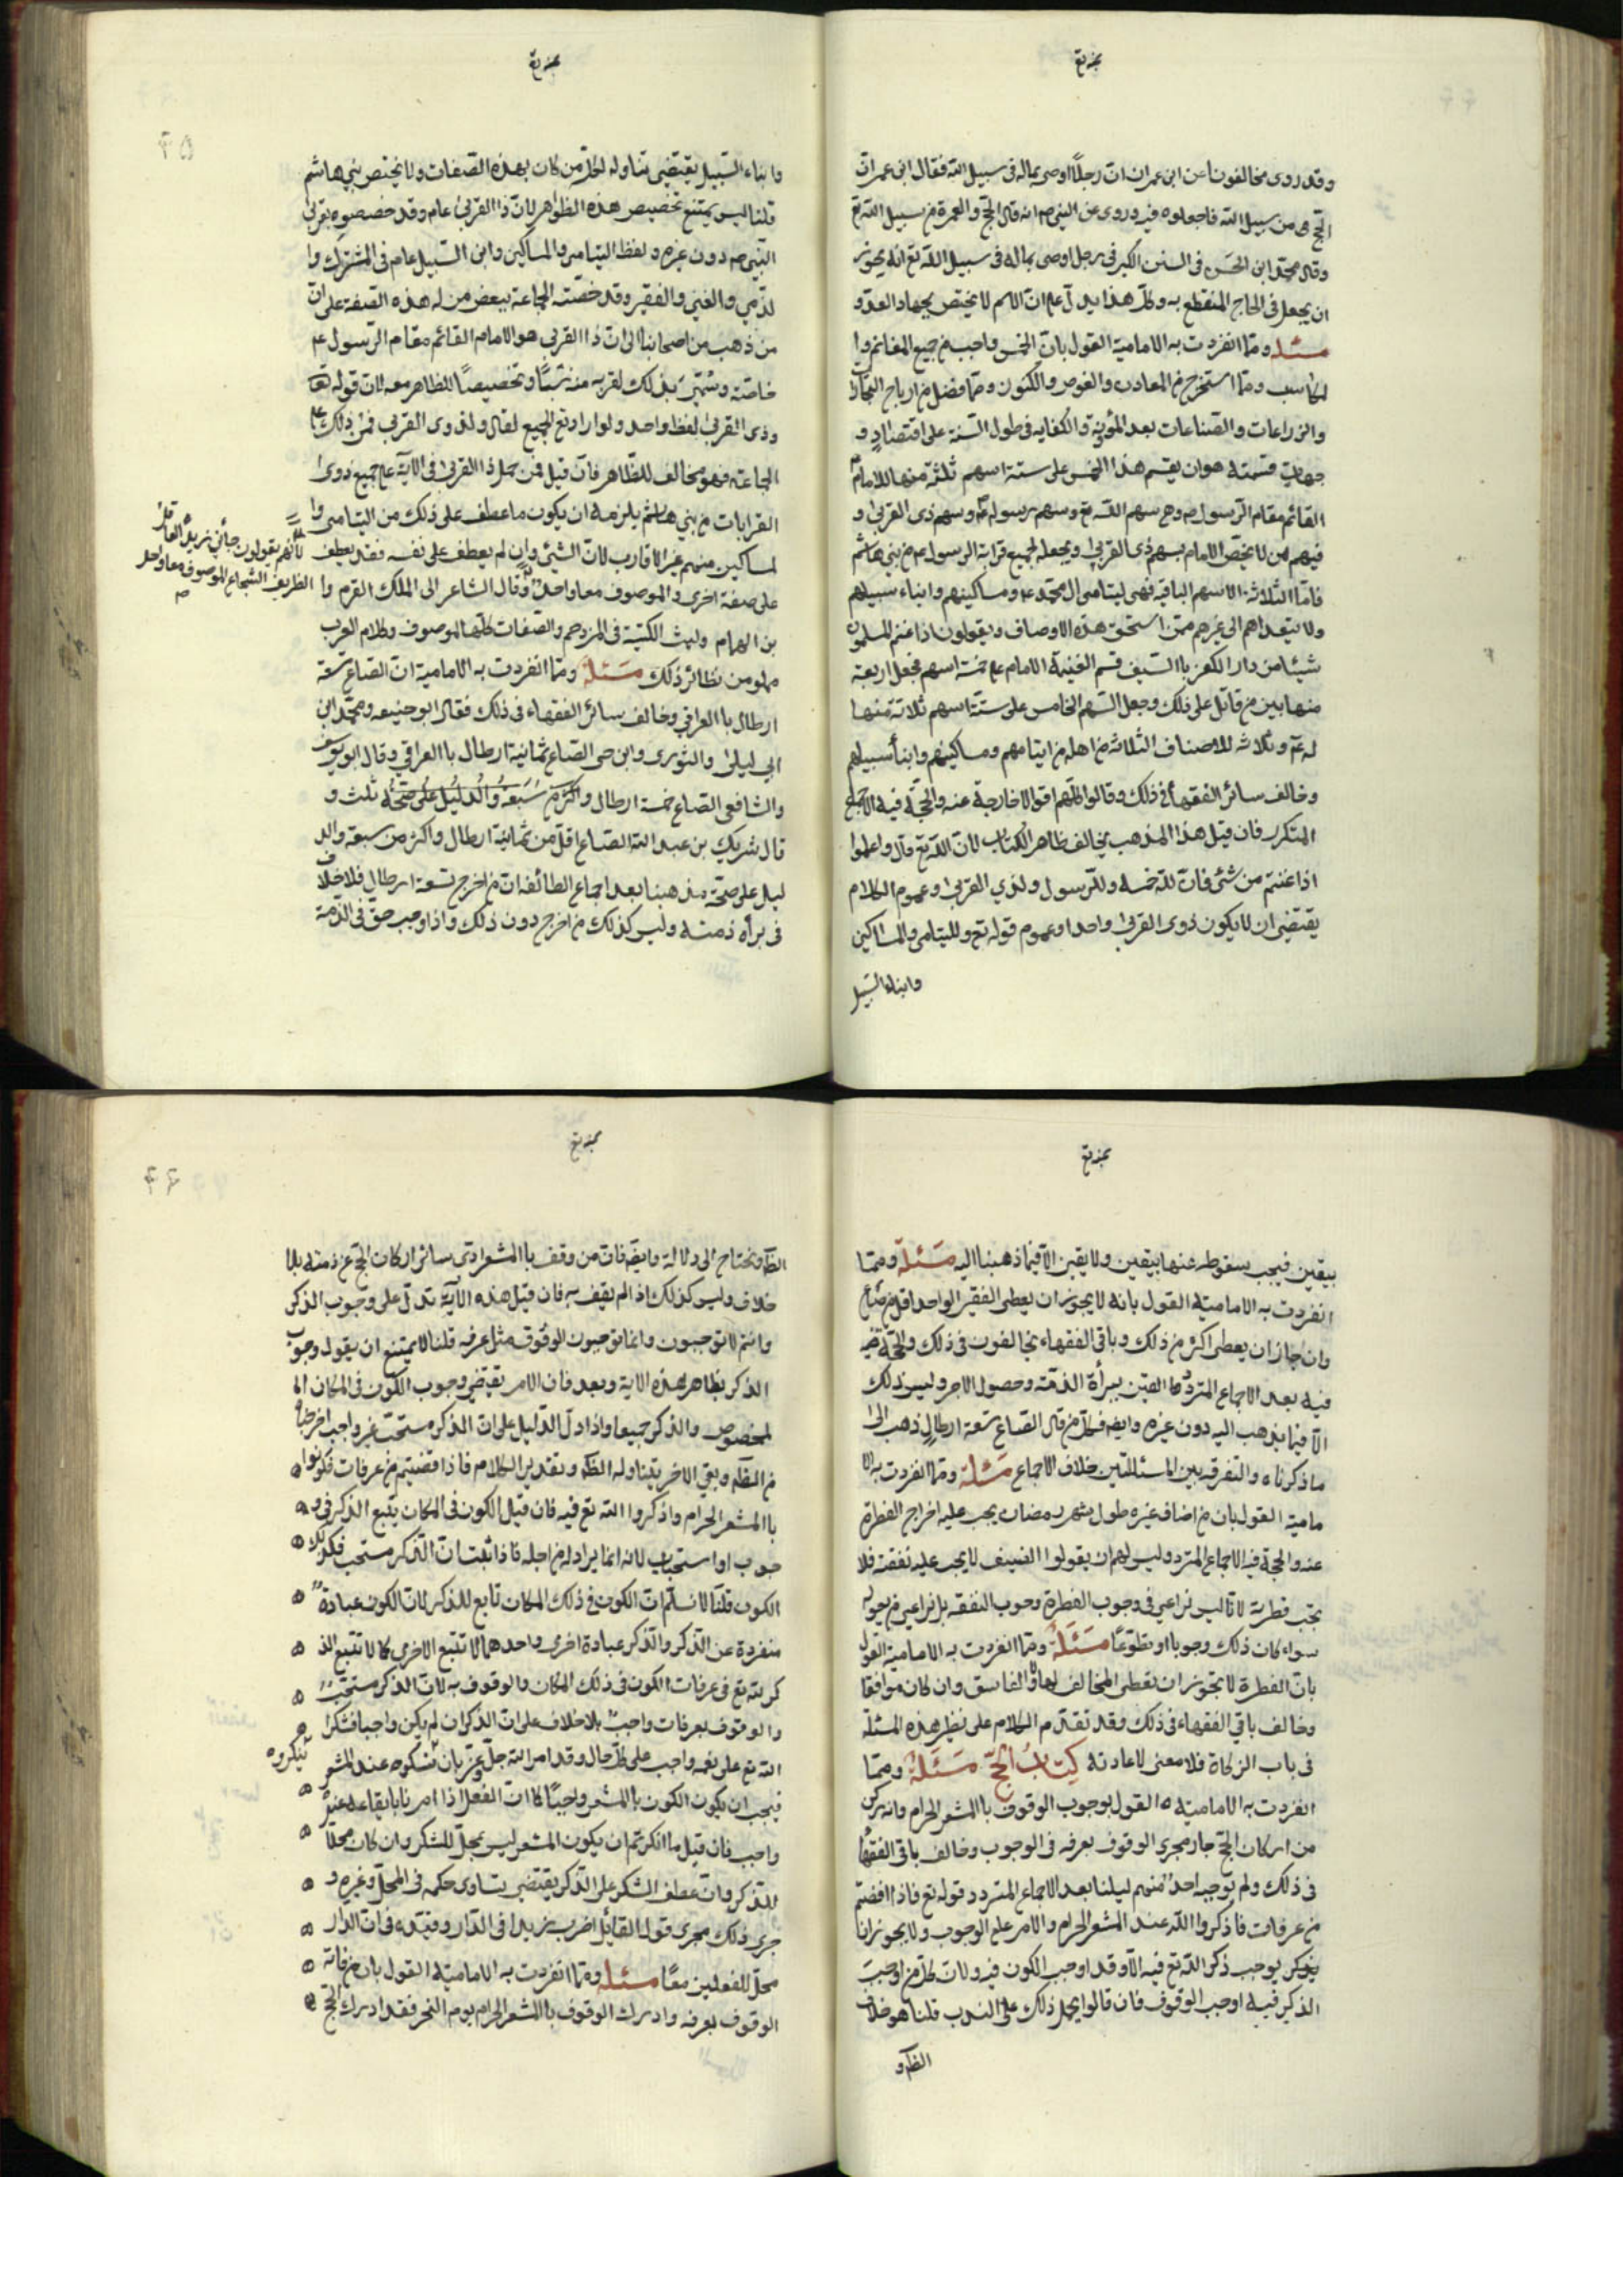 وقد روى مخالفونا عن ابن عمر ان ان رجلًا اوصى بماله فى سبيل الله فقال ابن عمر ان
الحج من سبيل الله فاجعلوه فيه وروى عن النبى ص انه قال الحج والعمرة من سبيل الله تع
وقال محمد ابن الحسن فى السنن الكبير فى رجل اوصى بماله فى سبيل الله تع انه يجوز
ان يجعل فى الحاج المنقطع به وكل هذا يدل على ان الاسم لا يختص بجهاد العدو
مسئله ومما انفردت به الامامية القول بان الخمس واجب من جميع المغانم وا
لمكاسب ومما استخرج من المعادن والغوص والكنوز ومما فضل من ارباح التجارات
والزراعات والصناعات بعد المؤنة والكفايه فى طول السنة على اقتصاد و
جهات قسمته هو ان يقسم هذا الخمس على ستة اسهم ثلثة منها للامام
القائم مقام الرسول ص وهى سهم الله تع وسهم رسوله وسهم ذى القربى و
فيهم من لا يخص الامام بسهم ذى القربى ويجعله لجميع قرابة الرسول ع من بنى هاشم
فاما الثلاثة الاسهم الباقيه فهى ليتامى ال محمد ع ومساكينهم وابناء سبيلهم
ولا يتعداهم الى غيرهم ممن استحق هذه الاوصاف ويقولون اذا غنم المسلمون
شيئا من دار الكفر باالسيف قسم الغنيمة الامام على خمسة اسهم فجعل اربعة
منها بين من قاتل على ذلك وجعل السهم الخامس على ستة اسهم ثلاثة منها
له ع وثلاثه للاصناف الثلاثة من اهله من ايتامهم ومساكينهم وابنأ سبيلهم
وخالف سائر الفقهأ فى ذلك وقالوا كلهم اقوالا خارجة عنه والحجة فيه الاجماع
المتكرر فان قيل هذا المذهب يخالف ظاهر الكتاب لان الله تع قال واعلموا
اذا غنمتم من شئ فان لله خمسه وللرسول ولذي القربى وعموم الكلام
يقتضى ان لا يكون ذوى القربى واحدا وعموم قوله تع ولليتامى والمساكين
وابناء السبيل
وابناء السبيل يقتضى تناوله لكل من كان بهذه الصفات ولا يختص بنى هاشم
قلنا ليس يمتنع تخصيص هذه الظواهر لان ذا القربى عام وقد خصصوه بقربى
النبى ص دون غيره ولفظ اليتامى والمساكين وابن السبيل عام فى المشرك وا
لذمى والغنى والفقير وقد خصته الجماعة ببعض من له هذه الصفة على ان
من ذهب من اصحابنا الى ان ذا القربى هو الامام القائم مقام الرسول ع
خاصته وسمى بذلك لقربه منه نسبًا وتخصيصًا الظاهر معه لان قوله تعا
وذى القربى لفظ واحد ولو اراد تع الجميع لقال ولذوى القربى فمن ذلك على
الجماعة فهو مخالف للظاهر فان قيل فمن حمل ذا القربى فى الآية على جميع ذوى ا
القرابات من بنى هاشم يلزمه ان يكون ما عطف على ذلك من اليتامى وا
لمساكين منهم غير الاقارب لان الشئ وان لم يعطف على نفسه فقد يعطف
على صفة اخرى والموصوف معا واحد وقال الشاعر الى الملك القرم وا
بن الهمام وليث الكتيبة فى المزدحم والصفات كلها لموصوف وكلام العرب
مملو من نظائر ذلك مسئلة ومما انفردت به الامامية ان الصاع تسعة
ارطال باالعراقى وخالف سائر الفقهاء فى ذلك فقال ابو حنيفه ومحمد ابن
ابى ليلى والثورى وابن حى الصاع ثمانية ارطال باالعراقى وقال ابو يوسف
والشافعى الصاع خمسة ارطال واكثر من سبعة والدليل على صحته ثلث و
قال شريك بن عبد الله الصاع اقل من ثمانية ارطال واكثر من سبعة والد
ليل على صحة مذهبنا بعد اجماع الطائفه ان من اخرج تسعة ارطال فلا خلاف
فى برأه ذمته وليس كذلك من اخرج دون ذلك واذا وجب حق فى الذمة
لانهم يقولون جأنى زيد العاقل
الظريف الشجاع الموصوف معا واحد
بيقين فيجب سقوطه عنها بيقين ولا يقين الا فيما ذهبنا اليه مسئلة ومما
انفردت به الامامية القول بانه لا يجوز ان يعطى الفقير الواحد اقل من صاع
وان جاز ان يعطى اكثر من ذلك وباقى الفقهاء يخالفون فى ذلك والحجة
فيه بعد الاجماع المتردد اليقين ببرأة الذمته وحصول الاجر وليس ذلك
الا فيما يذهب اليه دون غيره وايضا فكل من قال الصاع تسعة ارطال ذهب الى
ما ذكرناه والتفرقه بين المسئلتين خلاف الاجماع مسئلة ومما انفردت به الا
مامية القول بان من اضاف غيره طول شهر رمضان يجب عليه اخراج الفطرة
عنه والحجة فيه الاجماع المتردد وليس لهم ان يقولوا الضيف لا يجب عليه نفقته فلا
تجب فطرته لانا ليس نراعى فى وجوب الفطرة وجوب النفقه بل نراعى من يعوله
سواء كان ذلك وجوبا او تطوعًا مسئلة ومما انفردت به الامامية القول
بان الفطرة لا تجوز ان يعطى المخالف لها والفاسق وان كان موافقا
وخالف باقى الفقهاء فى ذلك وقد تقدم الكلام على نظير هذه المسئلة
فى باب الزكاة فلا معنى لاعادته كتاب الحج مسئلة ومما
انفردت به الامامية القول بوجوب الوقوف باالمشعر الحرام وانه ركن
من اركان الحج جار مجرى الوقوف بعرفه فى الوجوب وخالف باقى الفقهأ
فى ذلك ولم يوجبه احد منهم ليلنا بعد الاجماع المتردد قوله تع فاذا افضتم
من عرفات فاذكروا الله عند المشعر الحرام والامر على الوجوب ولا يجوز ان
يوجب ذكر الله تع فيه الا وقد اوجب الكون فيه ولان كل من اوجب
الذكر فيه اوجب الوقوف فان قالوا يحمل ذلك على الندب قلنا هو خلاف
الظاهر و
الظاهر ويحتاج الى دلالة وايضا فان من وقف باالمشعر ادى سائر اركان الحج عن ذمته بلا
خلاف وليس كذلك اذا لم يقف به فان قيل هذه الآية تدل على وجوب الذكر
وانتم لا توجبون وانما توجبون الوقوف مثل عرفه قلنا لا يمتنع ان يقول وجوب
الذكر بظاهر هذه الاية وبعد فان الامر يقتضى وجوب الكون فى المكان الم
لمخصوص والذكر جميعا واذا دل الدليل على ان الذكر مستحب غير واجب اخرجناه
من الظاهر وبقى الاخر يتناوله الظاهر وتقدير الكلام فاذا افضتم من عرفات فكونوا
باالمشعر الحرام واذكروا الله تع فيه فان قيل الكون فى المكان يتبع الذكر فى و
جوب او استحباب لانه انما يراد له من اجله فاذا ثبت ان الذكر مستحب فكذلك
الكون قلنا لا نسلم ان الكون فى ذلك المكان تابع للذكر لان الكون عبادة
منفردة عن الذكر والذكر عبادة اخرى واحدهما لا تتبع الاخرى كما لا تتبع الذ
كر لله تع فى عرفات الكون فى ذلك المكان والوقوف به لان الذكر مستحب
والوقوف بعرفات واجب بلا خلاف على ان الذكر ان لم يكن واجبا فشكر
الله تع على نعمه واجب على كل حال وقد امر الله جل عز بان نشكره عند المشعر
فيجب ان يكون الكون باالمشعر واجبًا كما ان الفعل اذا امرنا بايقاعه عنده
واجب فان قيل ما انكرتم ان يكون المشعر ليس بمحل للشكر وان كان محلا
للذكر وان عطف الشكر على الذكر يقتضى تساوى حكمه فى المحل وغيره و
جرى ذلك مجرى قول القائل اضرب زيدا فى الدار وقيده فى ان الدار
محل للفعلين معًا مسئله ومما انفردت به الامامية القول بان من فاته
الوقوف بعرفه وادرك الوقوف باالمشعر الحرام يوم النحر فقد ادرك الحج